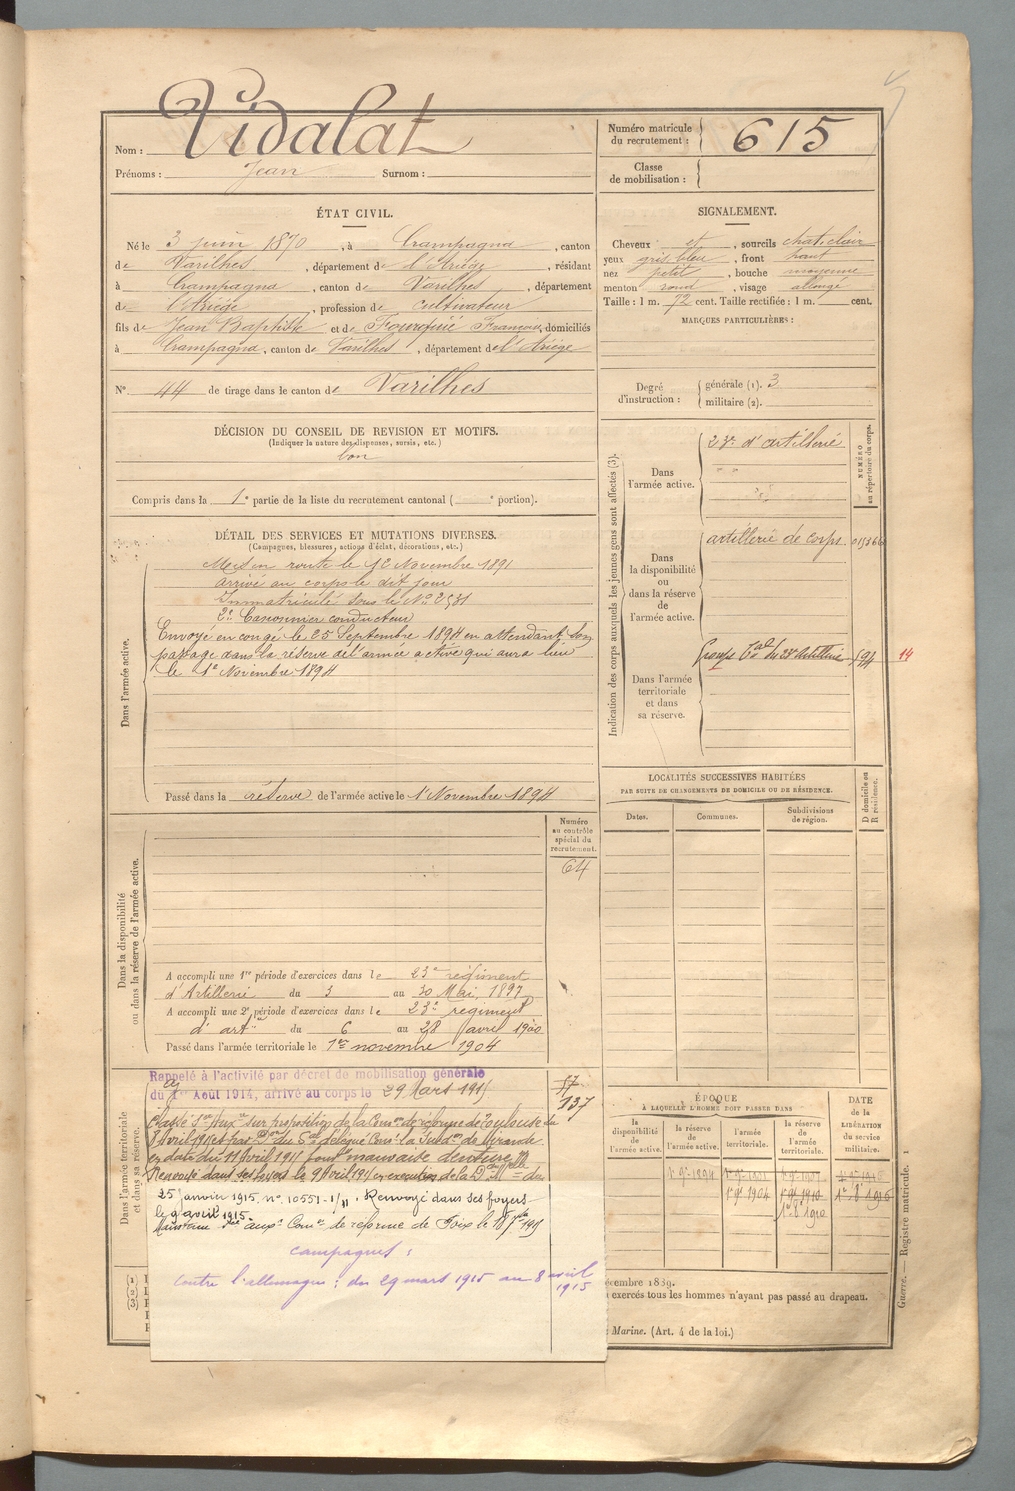 Nom : Vidalat
Prénoms : Jean Surnom :
Numéro matricule du recrutement : 615
Classe de mobilisation :
ÉTAT CIVIL.
Né le 3 juin 1870, à Crampagna, canton
de Varilhes, département de l'Ariège, résidant
à Crampagna, canton de Varilhes, département
de l'Ariège, profession de cultivateur
fils de Jean Baptiste et de Françoise, domiciliés
à Crampagna, canton de Varilhes, département de l'Ariège
N° 44 de tirage dans le canton de Varilhes
SIGNALEMENT.
Cheveux et, sourcils chat. clair
yeux gris bleu, front haut
nez petit, bouche moyenne
menton rond, visage allongé
Taille : 1 m. 72 cent. Taille rectifiée : 1 m. cent.
MARQUES PARTICULIÈRES :
Degré d'instruction : générale (1). 3
militaire (2).
DÉCISION DU CONSEIL DE REVISION ET MOTIFS.
(Indiquer la nature des dispenses, sursis, etc.)
bon
Compris dans la 1e partie de la liste du recrutement cantonal ( e portion).
DÉTAIL DES SERVICES ET MUTATIONS DIVERSES.
(Campagnes, blessures, actions d'éclat, décorations, etc.)
Dans l'armée active.
Mis en route le 12 Novembre 1891
arrivé au corps le dit jour
Immatriculé sous le No 2531
2e Canonnier conducteur
Envoyé en congé le 25 Septembre 1894 en attendant son
passage dans la réserve de l'armée active qui aura lieu
le 1e Novembre 1894
Passé dans la réserve de l'armée active le 1e Novembre 1894
Indication des corps auxquels les jeunes gens sont affectés (3).
NUMÉRO au répertoire du corps.
Dans l'armée active.
23e d'artillerie
Dans la disponibilité ou dans la réserve de l'armée active.
artillerie de corps.
Dans l'armée territoriale et dans sa réserve.
Groupe tal du 23e Artillerie 594 14
LOCALITÉS SUCCESSIVES HABITÉES
PAR SUITE DE CHANGEMENTS DE DOMICILE OU DE RÉSIDENCE.
Dates. Communes. Subdivisions de région. D domicile ou R résidence.
Dans la disponibilité ou dans la réserve de l'armée active.
Numéro au contrôle spécial du recrutement.
64
A accompli une 1re période d'exercices dans le 23e régiment
d'Artillerie du 3 au 30 Mai 1897
A accompli une 2e période d'exercices dans le 23e régiment
d'artie du 6 au 28 avril 1900
Passé dans l'armée territoriale le 1er novembre 1904
Dans l'armée territoriale et dans sa réserve.
Rappelé à l'activité par décret de mobilisation générale
du 1er Août 1914, arrivé au corps le 29 Mars 1915
137
Classé sur proposition de la Comon de réforme de Toulouse du
8 Avril 1915 et par Don du délégué la Subdon de Mirande
en date du 11 Avril 1915 pour mauvaise denture
Renvoyé dans ses foyers le 9 Avril 1915 en exécution de la D. Mlle du
25 janvier 1915, no. 10551-1/11. Renvoyé dans ses foyers
le 9 avril 1915
Maintenu Comon de réforme de Foix le
campagnes :
Contre l'allemagne : du 29 mars 1915 au 8 avril
1915
ÉPOQUE
À LAQUELLE L'HOMME DOIT PASSER DANS
la disponibilité de l'armée active.
la réserve de l'armée active.
l'armée territoriale.
la réserve de l'armée territoriale.
DATE de la LIBÉRATION du service militaire.
1e 9e 1894
1e 9e 1904 1e 9e 1910
1e 8e 1910
1e 8e 1916
(1)
(2)
(3)
écembre 1889.
exercés tous les hommes n'ayant pas passé au drapeau.
Marine. (Art. 4 de la loi.)
Guerre. — Registre matricule. 1